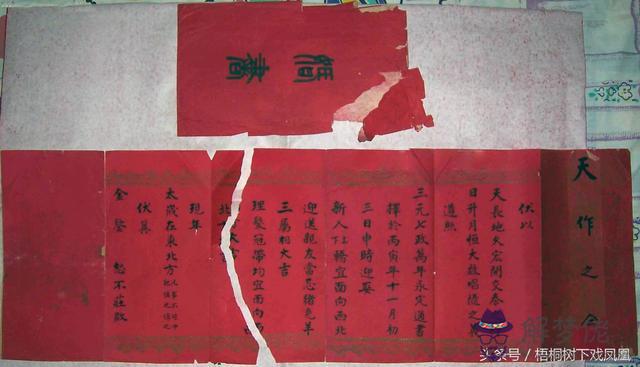 天作之合
伏以
天長地久宏開交泰
日升月恒大啟唱隨之
遵照
三元七政萬年永定通書
擇於丙寅年十一月初
三日申時迎娶
新人下轎宜面向西北
迎送親友當忌猪兔羊
三屬相大吉
理髮冠帶均宜面向西
北
現年
太歲在東北方
伏冀
金鑒 恕不莊啟
头条号 / 梧桐树下戏凤凰